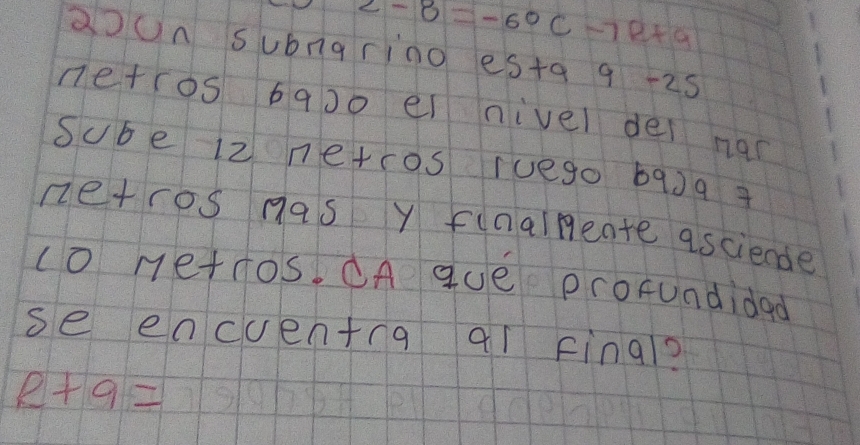 2 - 8 = -6°C → R+a
2) Un submarino esta a -25
metros bajo el nivel del mar
sube 12 metros luego baja 7
metros mas y finalmente asciende
10 metros. ¿A qué profundidad
se encuentra al final?
R+a =